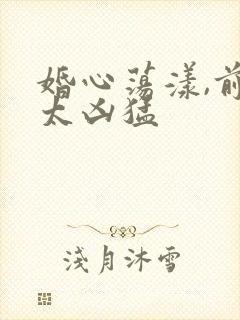 婚心荡漾,前
太凶猛
淺月沐雪